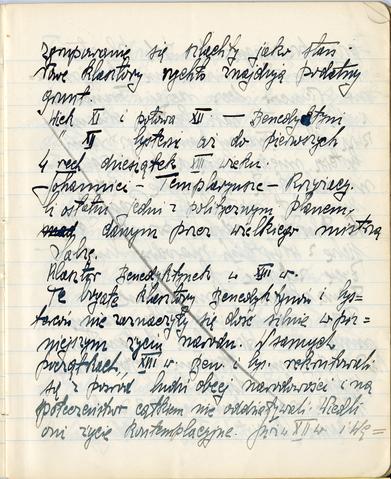 zgrupowanie się szlachty jako stan.
Nowe klasztory rychło znajdują podatny
grunt.
Wiek XI i połowa XII. — Benedyktyni
" XII Cystersi aż do pierwszych
4 rech dziesiątek XIII wieku.
Johannici — Templaryusze — Krzyżacy.
Ci ostatni jedni z politycznym planem,
danym przez wielkiego mistrza
Salzę.
Klasztor Benedyktynek w XIII w.
Te bogate klasztory Benedyktynów i Cys-
tersów nie zaznaczyły się dość silnie w póź-
niejszym życiu narodu. W samych
początkach, XIII w Ben. i Cys. rekrutowali
się z pośród ludzi obcej narodowości i na
społeczeństwo całkiem nie oddziaływali. Wiedli
oni życie kontemplacyjne. Już w XII w i